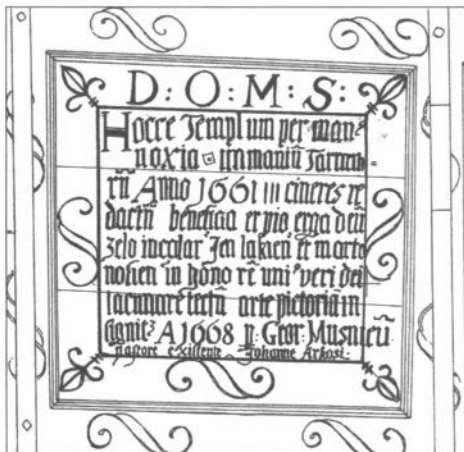 D : O : M : S :
Hocce Templum per man⸗
noxia iramaniū Tartaro⸗
rū Anno 1661 in cineres re
dactū beneficia et pio erga deū
zelo incolar Jen lakien et marto
nosien in hono rē uni veri dei
lacunare tectū arte pictoria in
signitᵌ A 1668 p: Geor: Musnicū
pastore existente Johanne Arkosi